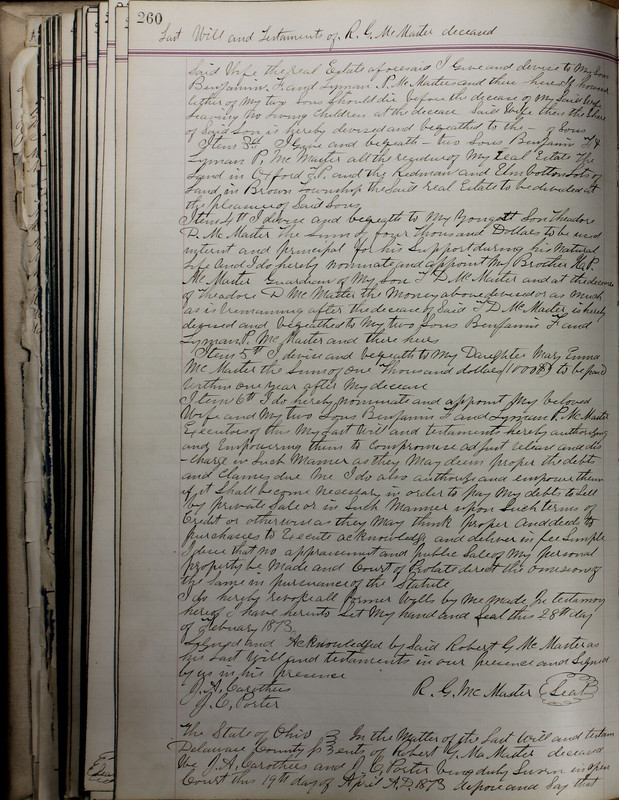 260
Last Will and Testaments of R. G. McMaster deceased
Said Wife the real Estate aforesaid I Give and devise to My Sons
Benjamin F. and Lyman P. McMaster and there heirs if however
either of My two Sons Should die before the decease of My Said Wife
leaving no living Children at the decease Said Wife then the Share
of Said Son is hereby devised and bequeathed to the - of Sons
Item 3d I give and begeath - two Sons Benjamin F &
Lyman P. McMaster all the residue of My real Estate the
Land in Oxford T.P. and the Redman and Elm bottom Lots of
Land in Brown Township the Said real Estate to be devided at
the pleasure of Said Sons
Item 4th I devise and begeath to My Yongest Son Theodore
D. McMaster the Sum of four Thousand Dollars to be used
interest and principal for his Support during his Natural
life And I do hereby nominate and appoint My Brother H. P.
McMaster Guardian of My Son T D McMaster and at the decease
of Theodore D McMaster the Money above devised or as much
as is remaining after the decease of Said T D McMaster is hereby
devised and begeathed to My two Sons Benjamin F. and
Lyman P. McMaster and there heirs
Item 5th I devise and begeath to My Daughter Mary Emma
McMaster the Sum of One Thousand dollars (1000$) to be paid
Within One year after My decease
Item 6th I do hereby nominate and appoint My beloved
Wife and My two Sons Benjamin F. and Lyman P. McMaster
Executors of this My Last Will and testament hereby authorizing
and Empowering them to Compromise adjust release and dis
-charge in Such Manner as they May deem proper the debts
and Claims due Me I do also authorize and empower them
if it Shall become Necessary in order to pay My debts to Sell
by private Sale or in Such Manner upon Such terms of
Credit or otherwise as they May think proper and deeds to
purchasers to Execute acknowledge and deliver in fee Simple
I desire that no appraisement and public Sale of My personal
property be Made and Court of Probate direct the omission of
the Same in pursuance of the Statute
I do hereby revoke all former Wills by Me Made In testimony
hereof I have hereunto Set My hand and Seal this 28th day
of February 1873.
Signed and Acknowledged by Said Robert G McMaster as
his Last Will and testaments in our presence and Signed
by us in his presence
J. A. Carothers R. G. McMaster Seal
J. C. Porter
The State of Ohio } In the Matter of the Last Will and testam
Delaware County } ents, of Robert G. McMaster deceased
We J. A. Carothers and J. C. Porter being duly Sworn in open
Court this 19th day of April A.D. 1873 depose and Say that